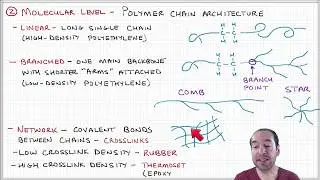 ② MOLECULAR LEVEL - POLYMER CHAIN ARCHITECTURE
- LINEAR - LONG SINGLE CHAIN
(HIGH-DENSITY POLYETHYLENE)
H H
-C-C-
H H
- BRANCHED - ONE MAIN BACKBONE
WITH SHORTER "ARMS" ATTACHED
(LOW-DENSITY POLYETHYLENE)
H H
-C-C-
H H
BRANCH
POINT
COMB
STAR
- NETWORK - COVALENT BONDS
BETWEEN CHAINS - CROSSLINKS
- LOW CROSSLINK DENSITY - RUBBER
- HIGH CROSSLINK DENSITY - THERMOSET
(EPOXY